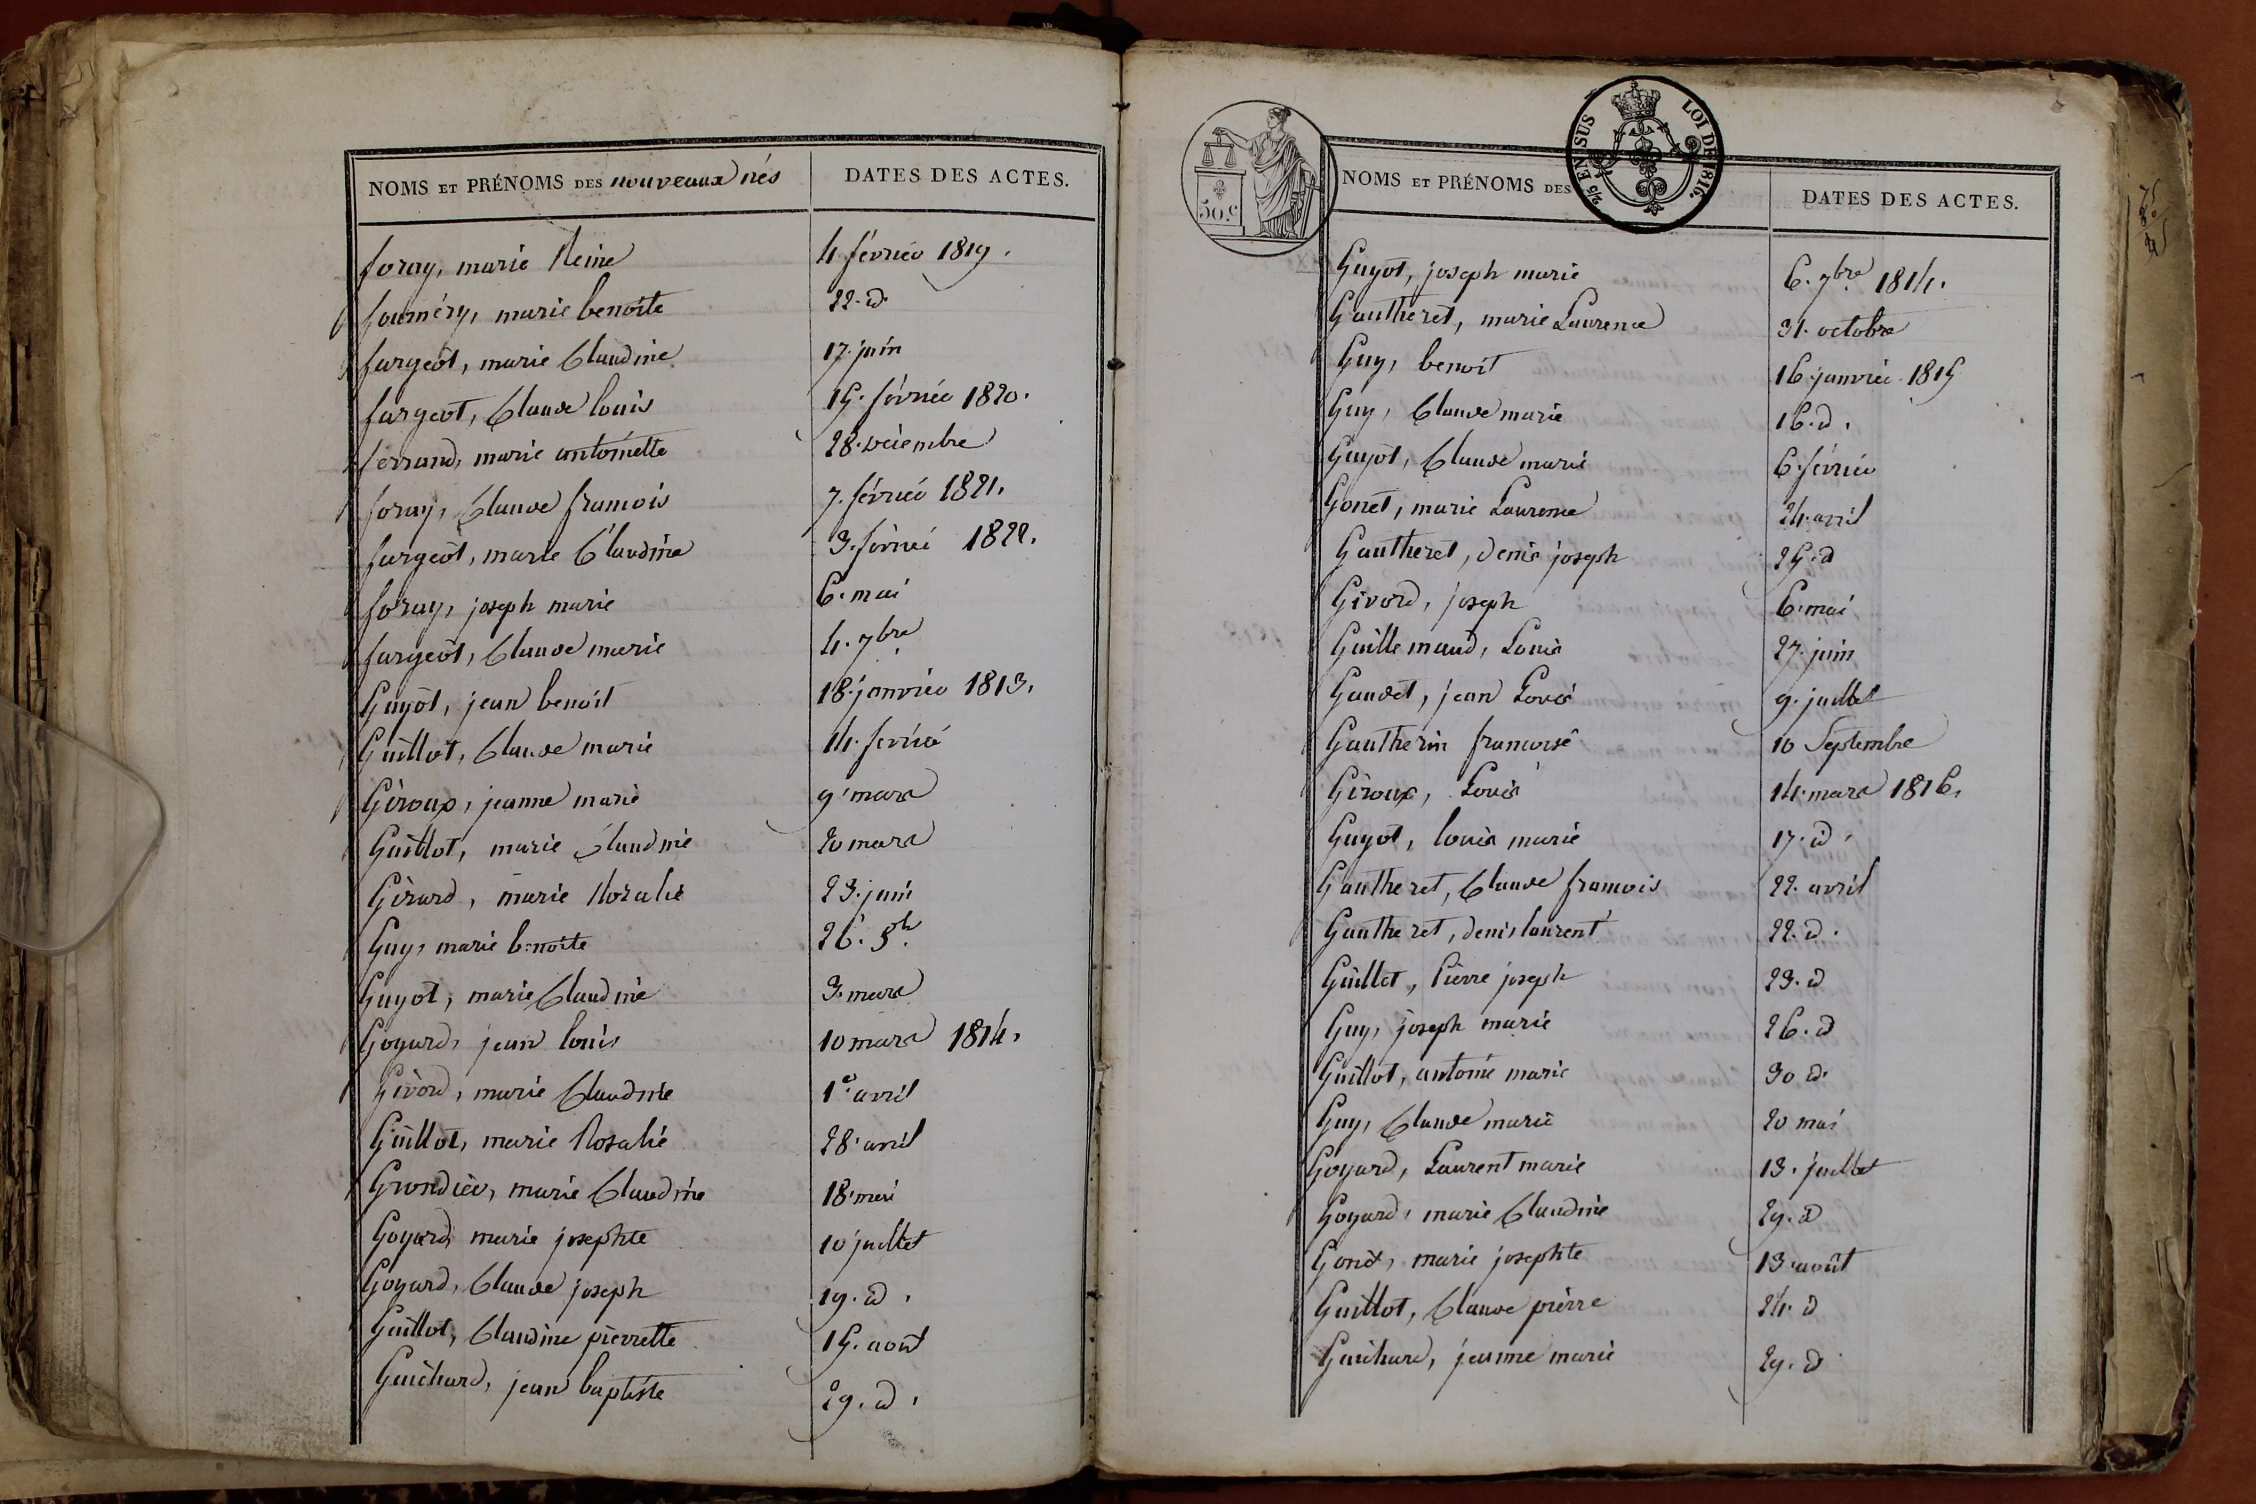 NOMS ET PRÉNOMS DES nouveaux nés DATES DES ACTES.
foray, marie Reine 4 février 1819.
fouméry, marie benoite 22. d.
fargeot, marie Claudine 17. juin
fargeot, Claude louis 15. février 1820.
ferrand, marie antoinette 28. décembre
foray, Claude francois 7. février 1821.
fargeot, marie Claudine 3. février 1822.
foray, joseph marie 6. mai
fargeot, Claude marie 4. 7bre.
Guyot, jean benoit 18. janvier 1813.
Guillot, Claude marie 14. février
Giroux, jeanne marie 9 mars
Guillot, marie Claudine 20 mars
Girard, marie Rosalie 23. juin
Guy, marie benoite 26.
Guyot, marie Claudine 3. mars
Goyard, jean louis 10 mars 1814.
Givord, marie Claudine 1e. avril
Guillot, marie Rosalie 28. avril
Grondier, marie Claudine 18. mai
Goyard, marie josephte 10 juillet
Goyard, Claude joseph 19. d.
Guillot, Claudine pierrette 15. août
Guichard, jean baptiste 29. d.
50.c
2/5 EN SUS LOI DE 1816.
NOMS ET PRÉNOMS DES DATES DES ACTES.
Guyot, joseph marie 6. 7bre. 1814.
Gautheret, marie Laurence 31. octobre
Guy, benoit 16. janvier 1815
Guy, Claude marie 16. d.
Guyot, Claude marie 6. février
Gonet, marie Laurence 24. avril
Gautheret, Denis joseph 25. d
Givord, joseph 6. mai
Guillemaud, Louis 27. juin
Gaudet, jean Louis 9. juillet
Gautherin francoise 10 Septembre
Giroux, Louis 14. mars 1816.
Guyot, louis marie 17. d.
Gautheret, Claude francois 22. avril
Gautheret, denis laurent 22. d.
Guillot, Pierre joseph 23. d
Guy, joseph marie 26. d
Guillot, antoine marie 30 d.
Guy, Claude marie 20 mai
Goyard, Laurent marie 13. juillet
Goyard, marie Claudine 29. d
Gonet, marie josephte 13. août
Guillot, Claude pierre 24. d
Guichard, jeanne marie 29. d